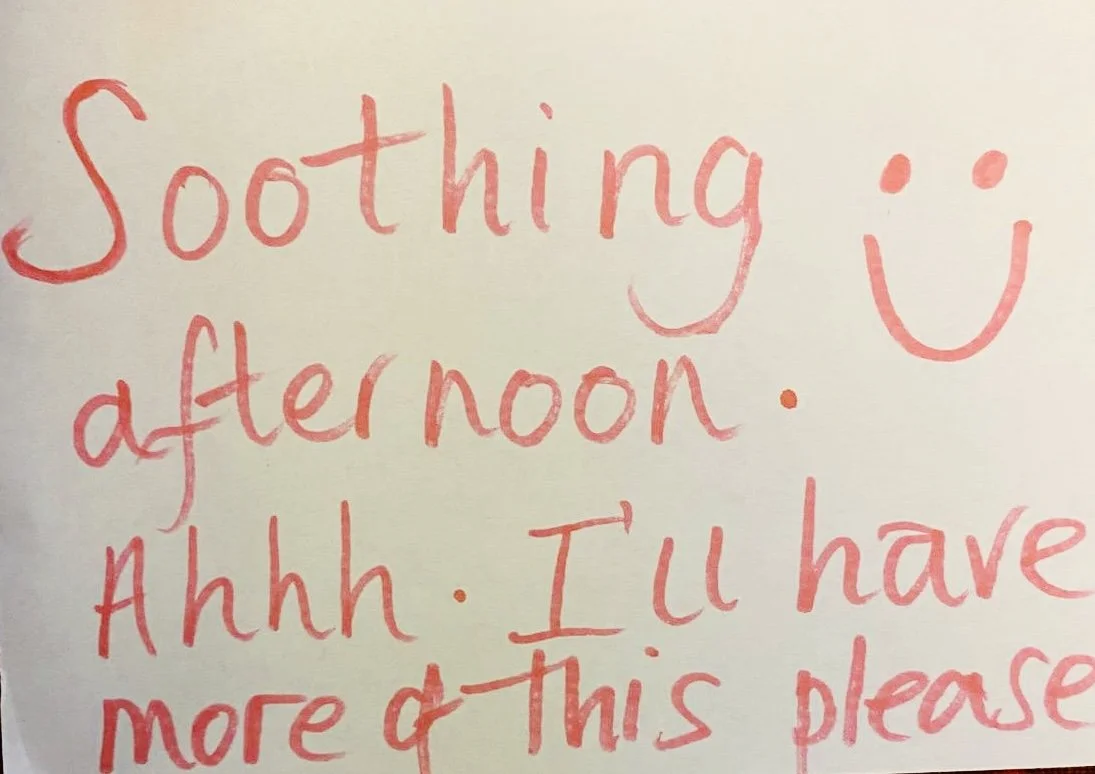 Soothing
afternoon.
Ahhh. I'll have
more of this please